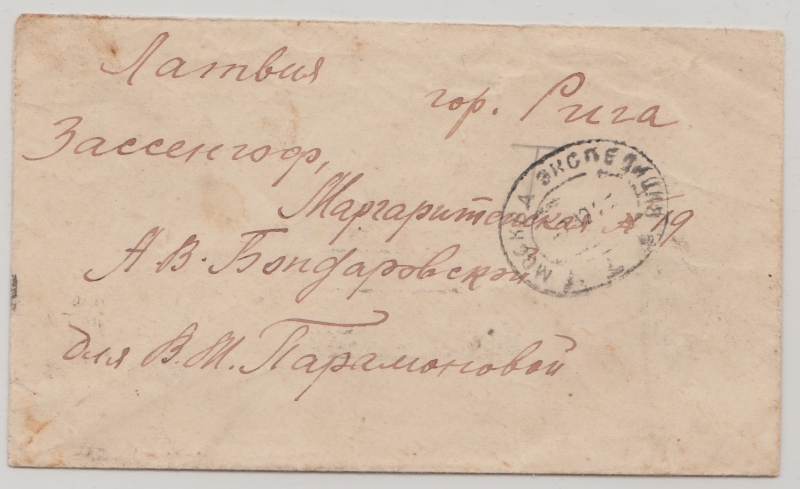 Латвия
гор. Рига
Зассенгоф,
Маргаритенская № 19
А. В. Бондаровской
для В. И. Парамоновой
МОСКВА ЭКСПЕДИЦИЯ